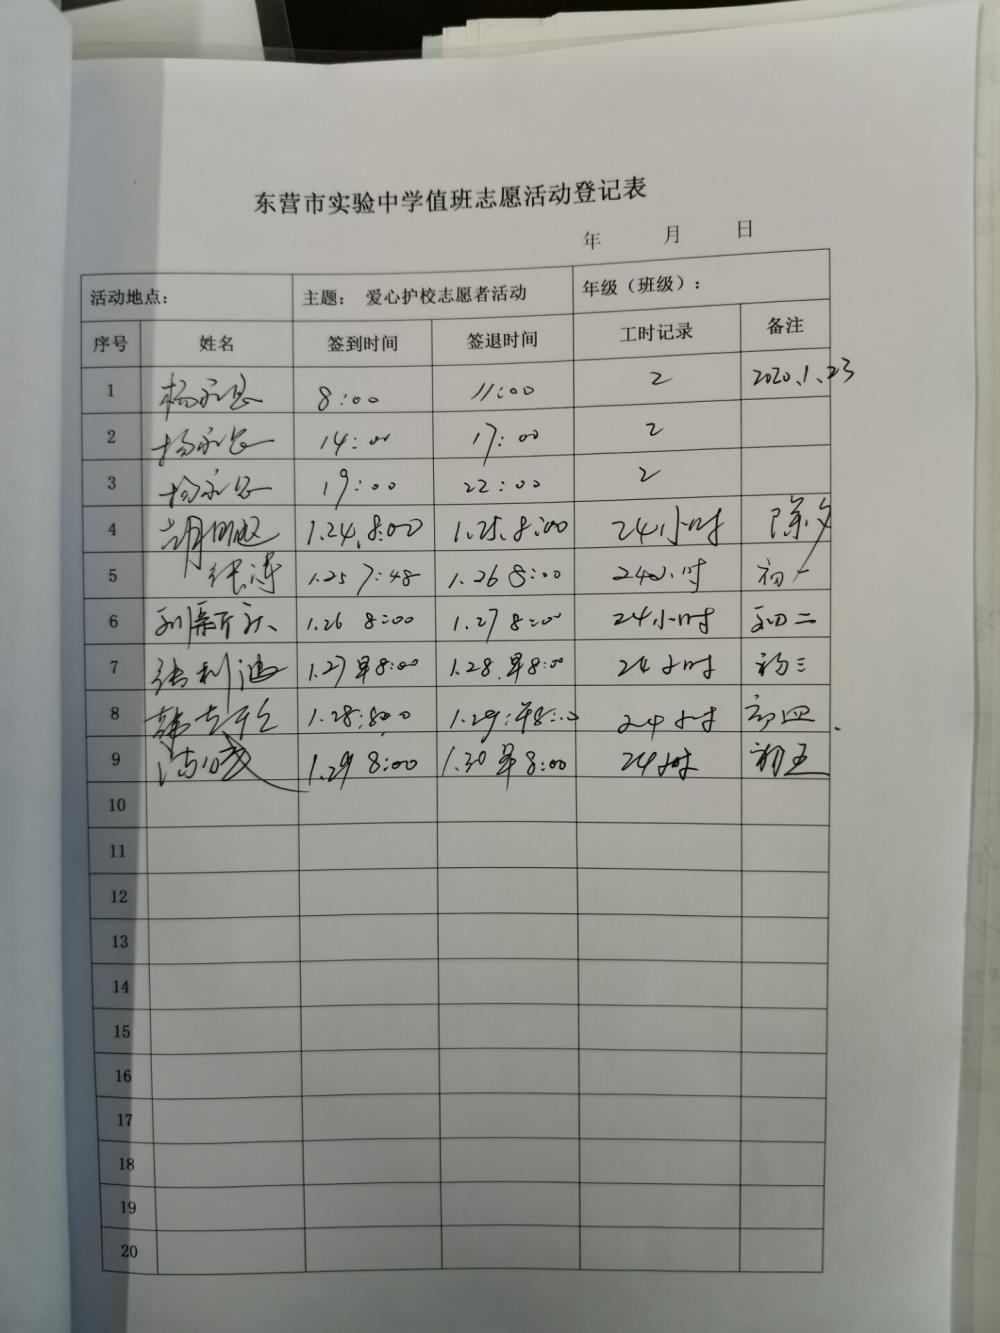 东营市实验中学值班志愿活动登记表
年 月 日
活动地点： 主题： 爱心护校志愿者活动 年级（班级）：
序号 姓名 签到时间 签退时间 工时记录 备注
1 8:00 11:00 2 2020.1.23
2 14:00 17:00 2
3 19:00 22:00 2
4 1.24.8:00 1.25.8:00 24小时 除夕
5 张涛 1.25 7:48 1.26 8:00 24小时 初一
6 1.26 8:00 1.27 8:00 24小时 初二
7 张利迪 1.27早8:00 1.28.早8:00 24小时 初三
8 1.28:8:00 1.29:早8:00 24小时 初四
9 1.29 8:00 1.30早8:00 24小时 初五
10
11
12
13
14
15
16
17
18
19
20